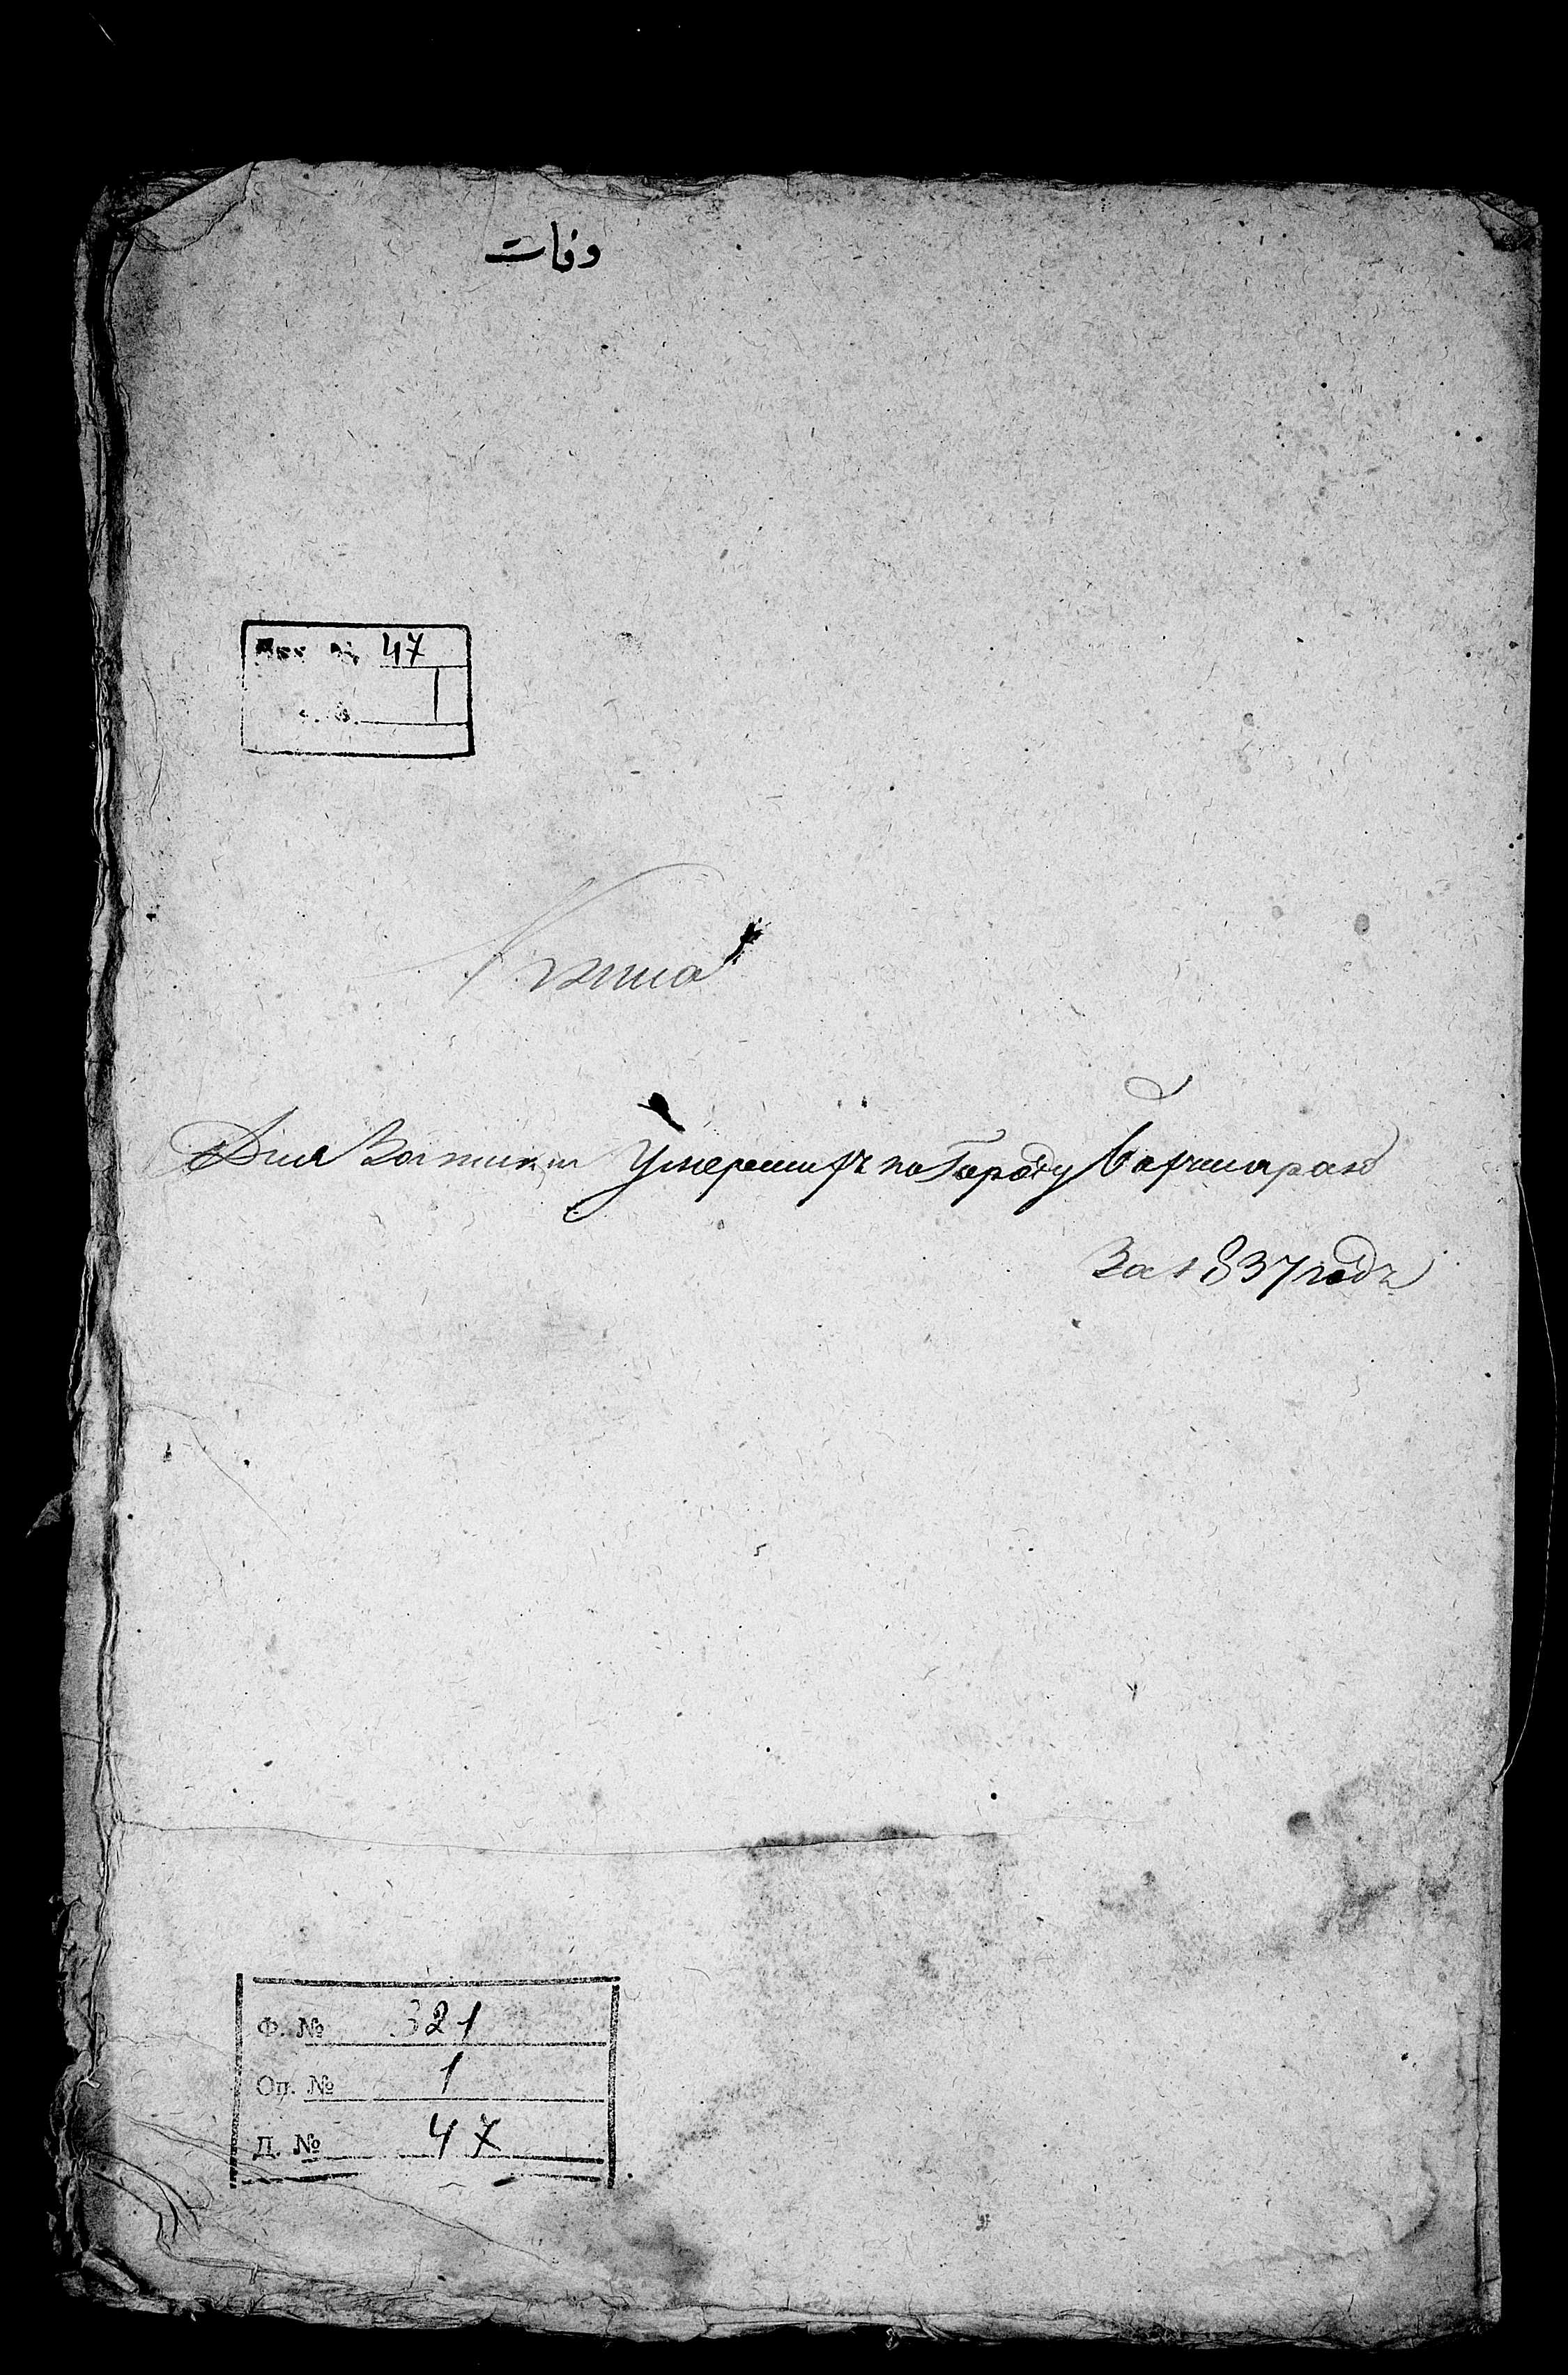 وفات
47
1
Книга
Для Записки Умерших по Городу Бахчисараю
За 1837 годъ
Ф. № 321
Оп. № 1
Д. № 47